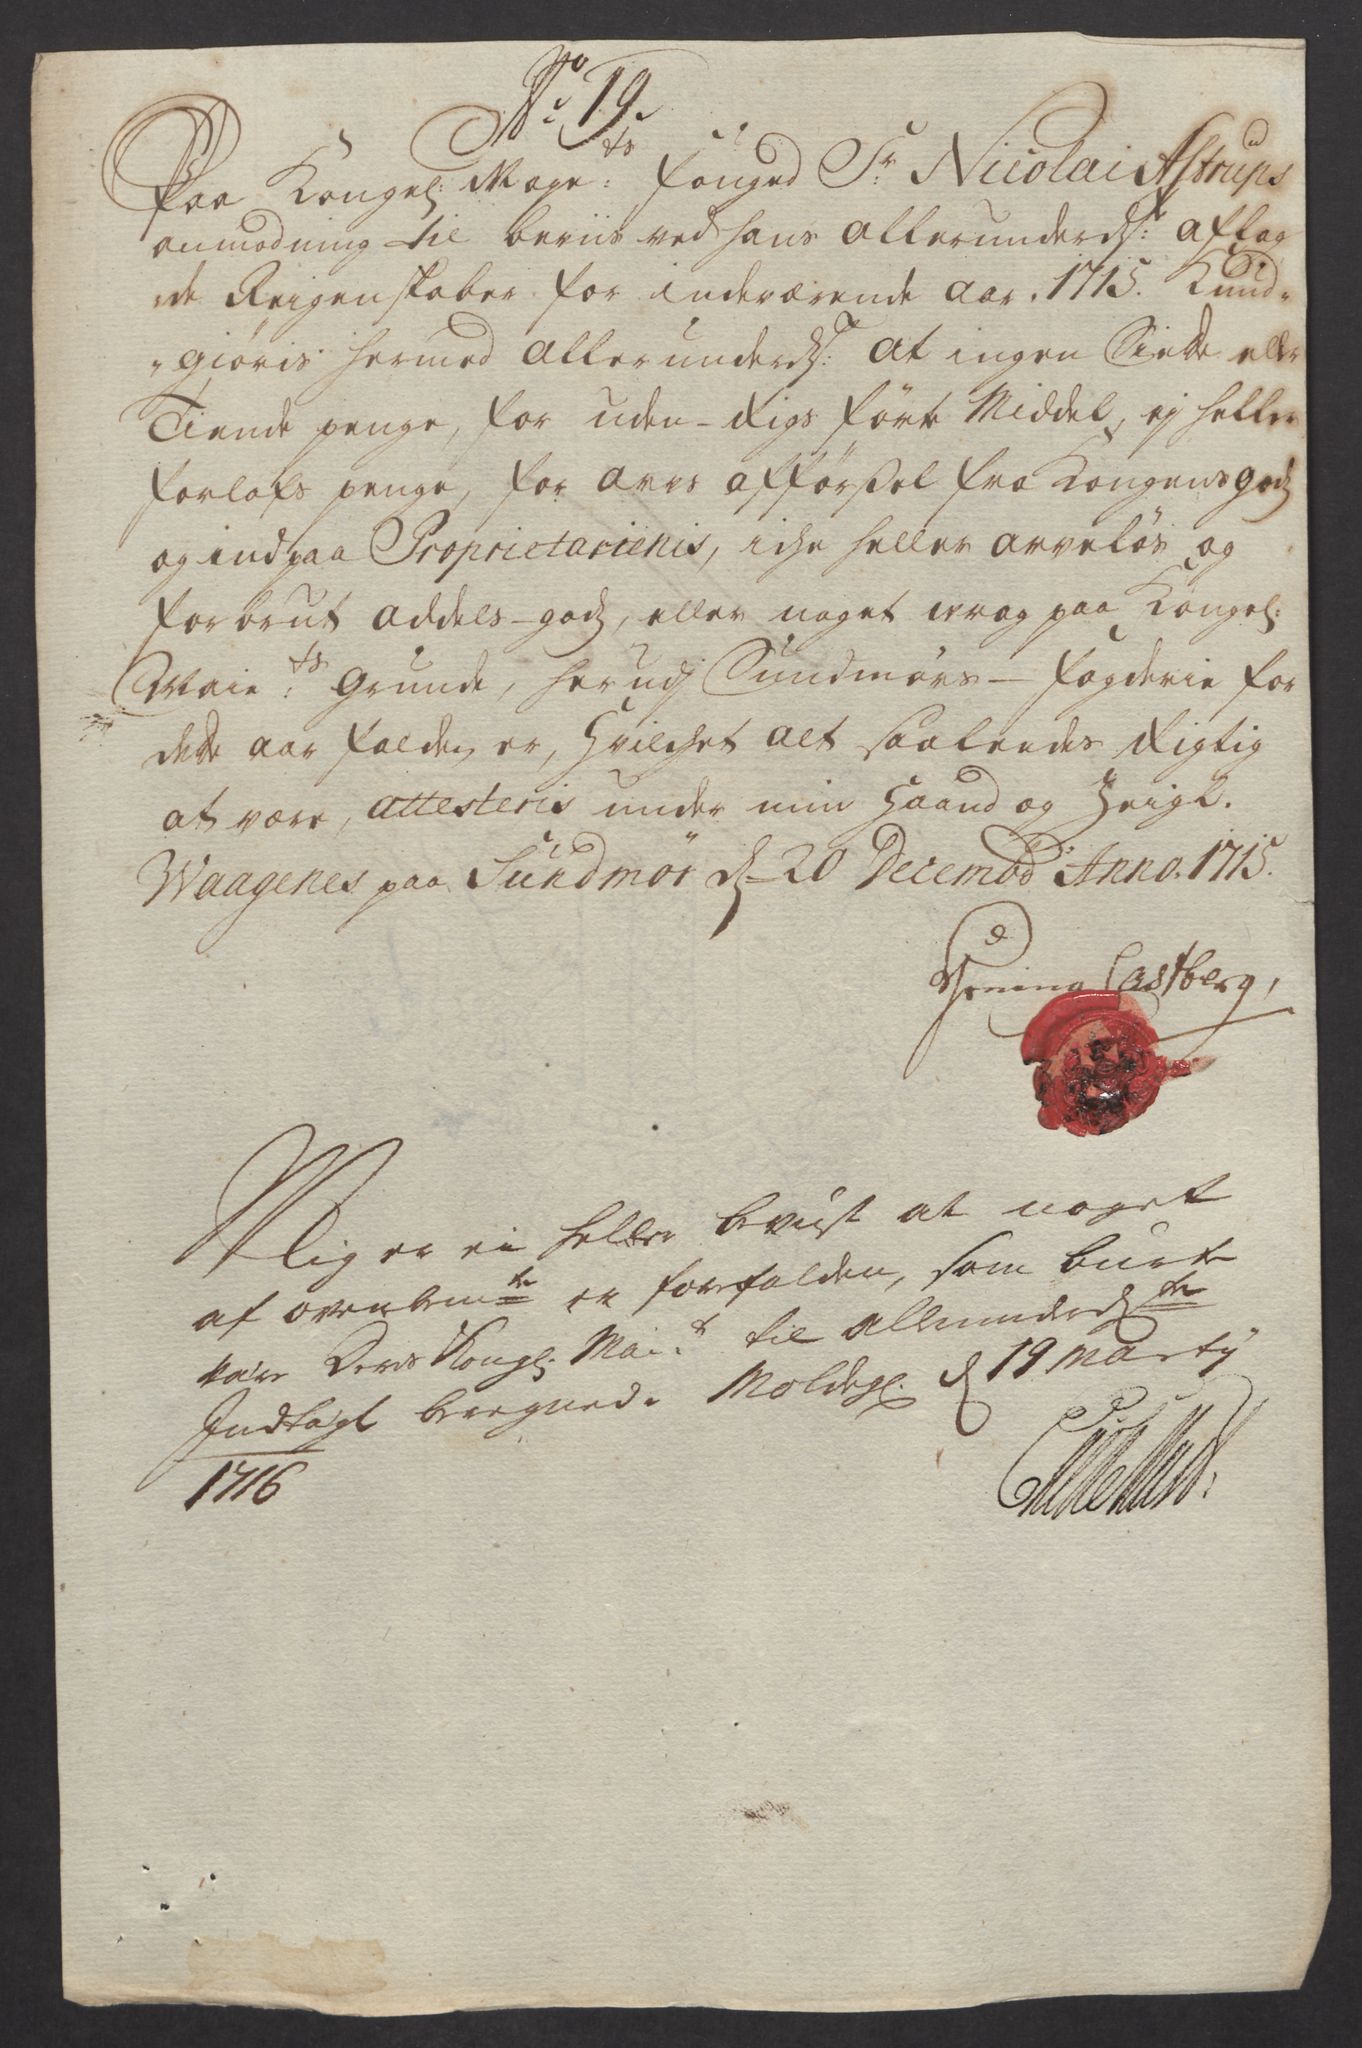 No 19.
Paa Kongel: Maye:ts fouged Sr. Nicolai Astrups
anmodning til beviis ved hans allerunderd: aflag
de Reigenskaber for indeværende aar. 1715. Kund-
-giøris hermed allerunderd: at ingen Siette eller
Tiende penge, for uden-Rigs førte Middel, ej heller
forlofs penge, for arvs afførsel fra Kongens godz
og ind paa Proprietariernis, iche heller arveløs og
forbrut addels-godz, eller noget wrag paa Kongel:
Maie:ts grunde, her udj Sundmørs-fogderie for
dette aar falden er, Hvilchet alt saaledes Rigtig
at være, attesteris under min Haand og Zeigl.
Waagenes paa Sundmør d. 20 Decembr Anno. 1715.
Hening Castberg,
Mig er ei heller bevist at noget
af ovenbemte er forfalden, som burte
være Deris Kongl: Mai:t til allerunderdte
Indtægt beregned. Moldeg. d 19 Marty
1716